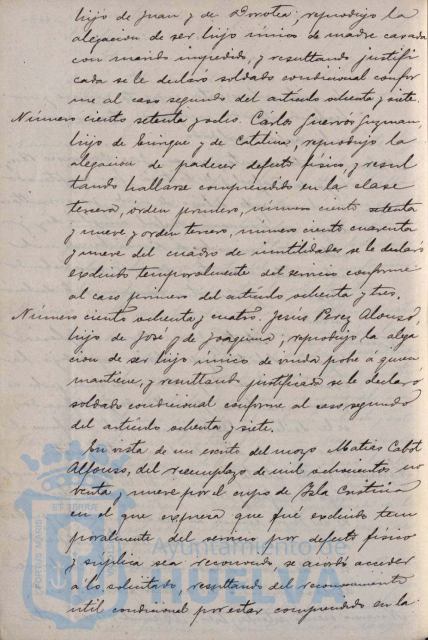 hijo de Juan y de Dorotea; reprodujo la
alegacion de ser hijo único de madre casada
con marido impedido, y resultando justifi
cada se le declaró soldado condicional confor
me al caso segundo del artículo ochenta y siete.
Número ciento setenta y ocho. Carlos Guzman,
hijo de Enrique y de Catalina, reprodujo la
alegacion de padecer defecto físico, y resul
tando hallarse comprendido en la clase
tercera, órden primero, número ciento setenta
y nueve y orden tercero, número ciento cuarenta
y nueve del cuadro de inutilidades se le declaró
excluido temporalmente del servicio conforme
al caso primero del artículo ochenta y tres.
Número ciento ochenta y cuatro. Jesús Perez Alonso,
hijo de José y de Joaquina; reprodujo la alega
cion de ser hijo único de viuda pobre á quien
mantiene, y resultando justificada se le declaró
soldado condicional conforme al caso segundo
del artículo ochenta y siete.
En vista de un escrito del mozo Matias Cabot
Alfonso, del reemplazo de mil ochocientos no
venta y nueve por el cupo de Isla Cristina
en el que expresa que fué excluido tem
poralmente del servicio por defecto físico
y suplica sea reconocido, se acordó acceder
á lo solicitado, resultando del reconocimiento
útil condicional por estar comprendido en la
Ayuntamiento de
HUELVA
PORTUS MARIS
ET TERRÆ